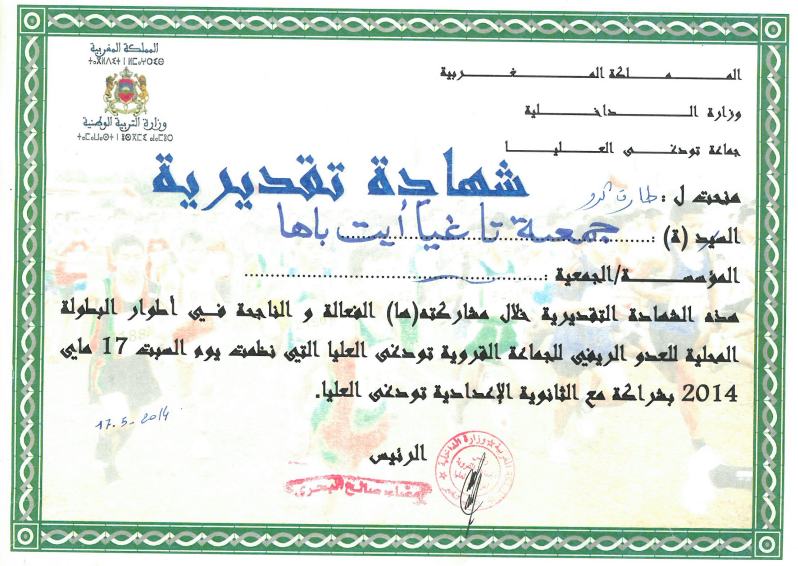 المملكة المغربية
ⵜⴰⴳⵍⴷⵉⵜ ⵏ ⵍⵎⵖⵔⵉⴱ
وزارة التربية الوطنية
ⵜⴰⵎⴰⵡⴰⵙⵜ ⵏ ⵓⵙⴳⵎⵉ ⴰⵏⴰⵎⵓⵔ
المـــملكة المـــغـــربية
وزارة الـــداخـــلية
جماعة تودغى العـــليـــا
شهادة تقديرية
منحت ل : طارق
السيد (ة) : جمعية تاغيا أيت باها
المؤسســـة/الجمعية :
هذه الشهادة التقديرية خلال مشاركته(ها) الفعالة و الناجحة في أطوار البطولة
المحلية للعدو الريفي للجماعة القروية تودغى العليا التي نظمت يوم السبت 17 ماي
2014 بشراكة مع الثانوية الإعدادية تودغى العليا.
17.5-2014
الرئيس
وزارة الداخلية
إمضاء: صالح البحري